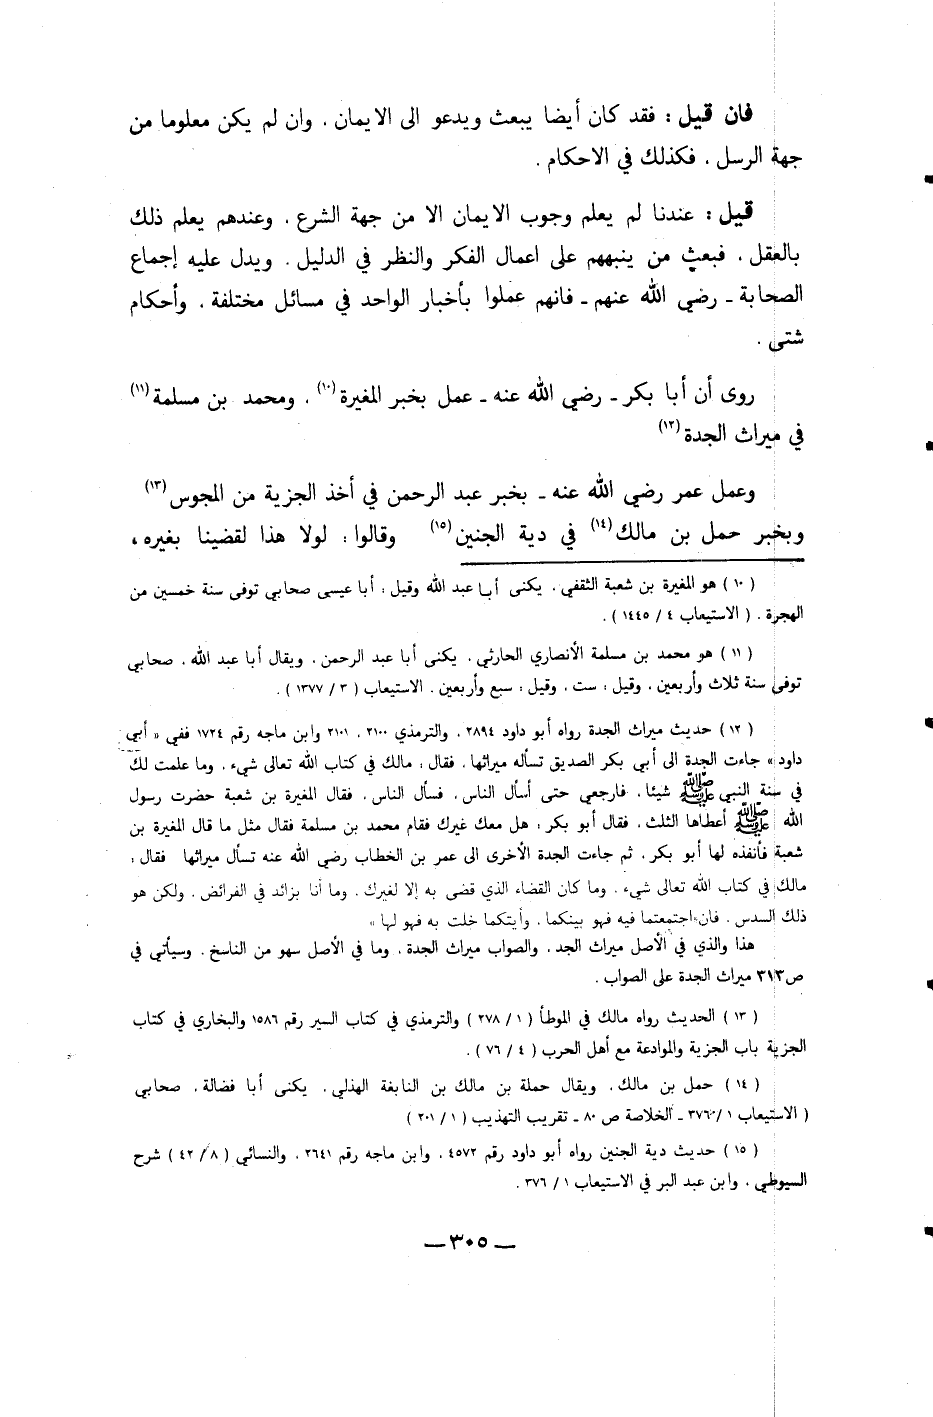 فان قيل : فقد كان أيضا يبعث ويدعو الى الايمان ، وان لم يكن معلوما من
جهة الرسل ، فكذلك في الاحكام .
قيل : عندنا لم يعلم وجوب الايمان الا من جهة الشرع ، وعندهم يعلم ذلك
بالعقل ، فبعث من ينبههم على اعمال الفكر والنظر في الدليل . ويدل عليه إجماع
الصحابة ـ رضي الله عنهم ـ فانهم عملوا بأخبار الواحد في مسائل مختلفة ، وأحكام
شتى .
روى أن أبا بكر ـ رضي الله عنه ـ عمل بخبر المغيرة (١٠) ، ومحمد بن مسلمة (١١)
في ميراث الجدة (١٢)
وعمل عمر رضي الله عنه ـ بخبر عبد الرحمن في أخذ الجزية من المجوس (١٣)
وبخبر حمل بن مالك (١٤) في دية الجنين (١٥) وقالوا : لولا هذا لقضينا بغيره ،
( ١٠ ) هو المغيرة بن شعبة الثقفي ، يكنى أبا عبد الله وقيل : أبا عيسى صحابي توفى سنة خمسين من
الهجرة . ( الاستيعاب ٤ / ١٤٤٥ ) .
( ١١ ) هو محمد بن مسلمة الأنصاري الحارثي ، يكنى أبا عبد الرحمن ، ويقال أبا عبد الله ، صحابي
توفى سنة ثلاث وأربعين ، وقيل : ست ، وقيل : سبع وأربعين . الاستيعاب ( ٣ / ١٣٧٧ ) .
( ١٢ ) حديث ميراث الجدة رواه أبو داود ٢٨٩٤ ، والترمذي ٢١٠٠ ، ٢١٠١ وابن ماجه رقم ١٧٢٤ ففي « أبي
داود » جاءت الجدة الى أبي بكر الصديق تسأله ميراثها ، فقال : مالك في كتاب الله تعالى شيء ، وما علمت لك
في سنة النبي ﷺ شيئا ، فارجعي حتى أسأل الناس ، فسأل الناس ، فقال المغيرة بن شعبة حضرت رسول
الله ﷺ أعطاها الثلث ، فقال أبو بكر : هل معك غيرك فقام محمد بن مسلمة فقال مثل ما قال المغيرة بن
شعبة فأنفذه لها أبو بكر ، ثم جاءت الجدة الأخرى الى عمر بن الخطاب رضي الله عنه تسأل ميراثها فقال :
مالك في كتاب الله تعالى شيء ، وما كان القضاء الذي قضى به إلا لغيرك ، وما أنا بزائد في الفرائض ، ولكن هو
ذلك السدس ، فان اجتمعتما فيه فهو بينكما ، وأيتكما خلت به فهو لها »
هذا والذي في الأصل ميراث الجد ، والصواب ميراث الجدة ، وما في الأصل سهو من الناسخ ، وسيأتي في
ص٣١٣ ميراث الجدة على الصواب .
( ١٣ ) الحديث رواه مالك في الموطأ ( ١ / ٢٧٨ ) والترمذي في كتاب السير رقم ١٥٨٦ والبخاري في كتاب
الجزية باب الجزية والموادعة مع أهل الحرب ( ٤ / ٧٦ ) .
( ١٤ ) حمل بن مالك ، ويقال حملة بن مالك بن النابغة الهذلي ، يكنى أبا فضالة ، صحابي
( الاستيعاب ١ / ٣٧٦ ـ الخلاصة ص ٨٠ ـ تقريب التهذيب ( ١ / ٢٠١ )
( ١٥ ) حديث دية الجنين رواه أبو داود رقم ٤٥٧٢ ، وابن ماجه رقم ٢٦٤١ ، والنسائي ( ٨ / ٤٢ ) شرح
السيوطي ، وابن عبد البر في الاستيعاب ١ / ٣٧٦ .
ـ ٣٠٥ ـ